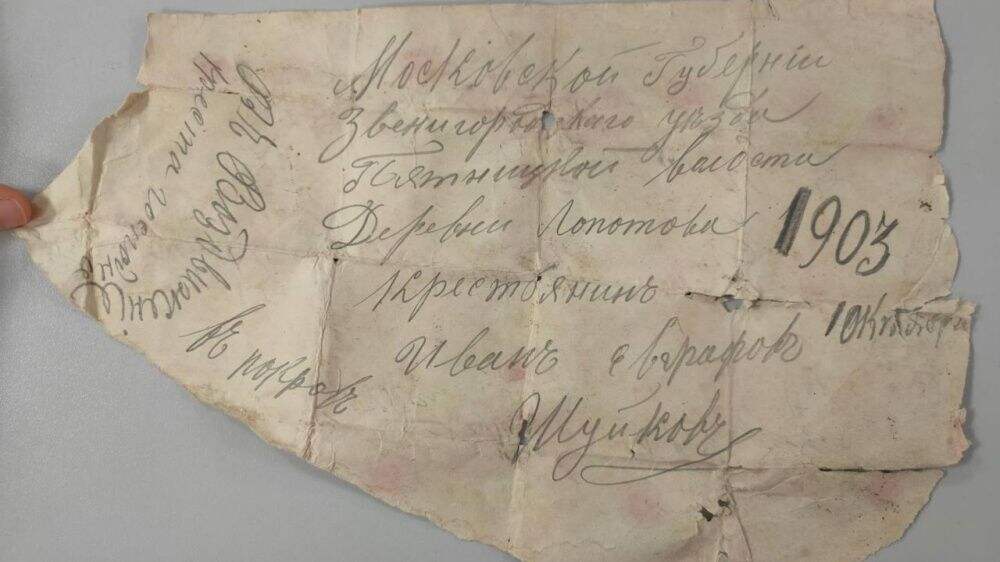 Московской Губерніи
Звенигородскаго уѣзда
Пятницкой валости
Деревни Лопотова
крестьянинъ
Иванъ Евграфовъ
Шуйковъ
1903
1 Октебря
Воздвиженіе
креста господне
въ покровъ